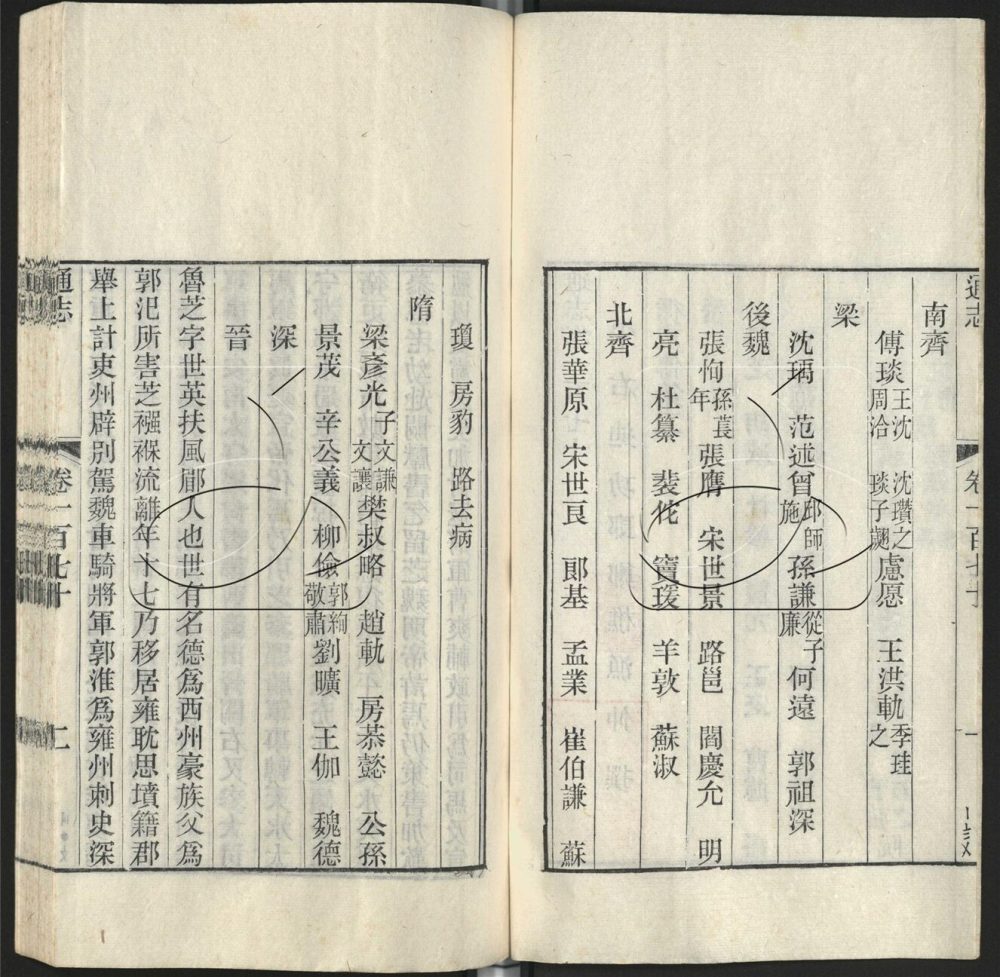 通志 卷一百七十 一
南齊
傅琰 王沈 周洽 沈瓚之 琰子翽 虞愿 王洪軌 季珪之
梁
沈瑀 范述曾 邱師施 孫謙 從子廉 何遠 郭祖深
後魏
張恂 孫萇年 張膺 宋世景 路邕 閻慶允 明
亮 杜纂 裴佗 竇瑗 羊敦 蘇淑
北齊
張華原 宋世良 郎基 孟業 崔伯謙 蘇
瓊 房豹 路去病
隋
梁彥光 子文謙 文讓 樊叔略 趙軌 房恭懿 公孫
景茂 辛公義 柳儉 郭絢 敬肅 劉曠 王伽 魏德
深
晉
魯芝字世英扶風郿人也世有名德爲西州豪族父爲
郭汜所害芝襁褓流離年十七乃移居雍耽思墳籍郡
舉上計吏州辟別駕魏車騎將軍郭淮爲雍州刺史深
通志 卷一百七十